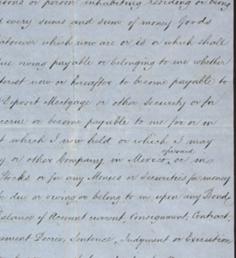 or person inhabiting residing or being
d every sums and sum of money Goods
atsoever which now are or is or which shall
due owing payable or belonging to me whether
terest now or hereafter to become payable to
Export Mortgage or other Security or for
come or become payable to me for or in
t which I now hold or which I may
y or other Company in Mexico, or in
Stocks or for any Monies or Securities for money
be due or owing or belong to in upon any Bond,
Balance of Account current, Consignment, Contract,
Decree, Sentence, Judgment or Execution